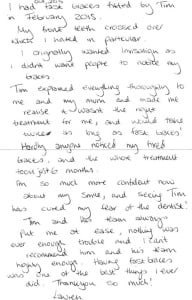 I had fast braces fitted by Tim
in February 2015.
My front teeth crossed over
which I hated in particular.
I originally wanted Invisalign as
I didnt want people to notice my
braces
Tim explained everything thoroughly to
me and my mum and made me
realise it wasnt the right
treatment for me, and would take
twice as long as fast braces!
Hardly anyone noticed my fixed
braces, and the whole treatment
took just 6 months.
I'm so much more confident now
about my smile, and seeing Tim
has cured my fear of the dentist!
Tim and his team always
put me at ease, nothing was
ever enough trouble and I cant
recommend him and his team
highly enough. Having fast braces
was one of the best things I ever
did. Thankyou so much!
Lauren